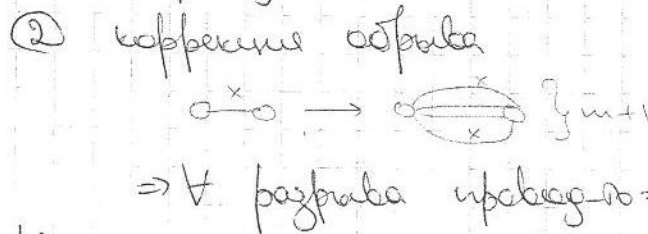 ② коррекция обрыва
x
x
x
} m+1
=> ∀ разрыва провод-ть =